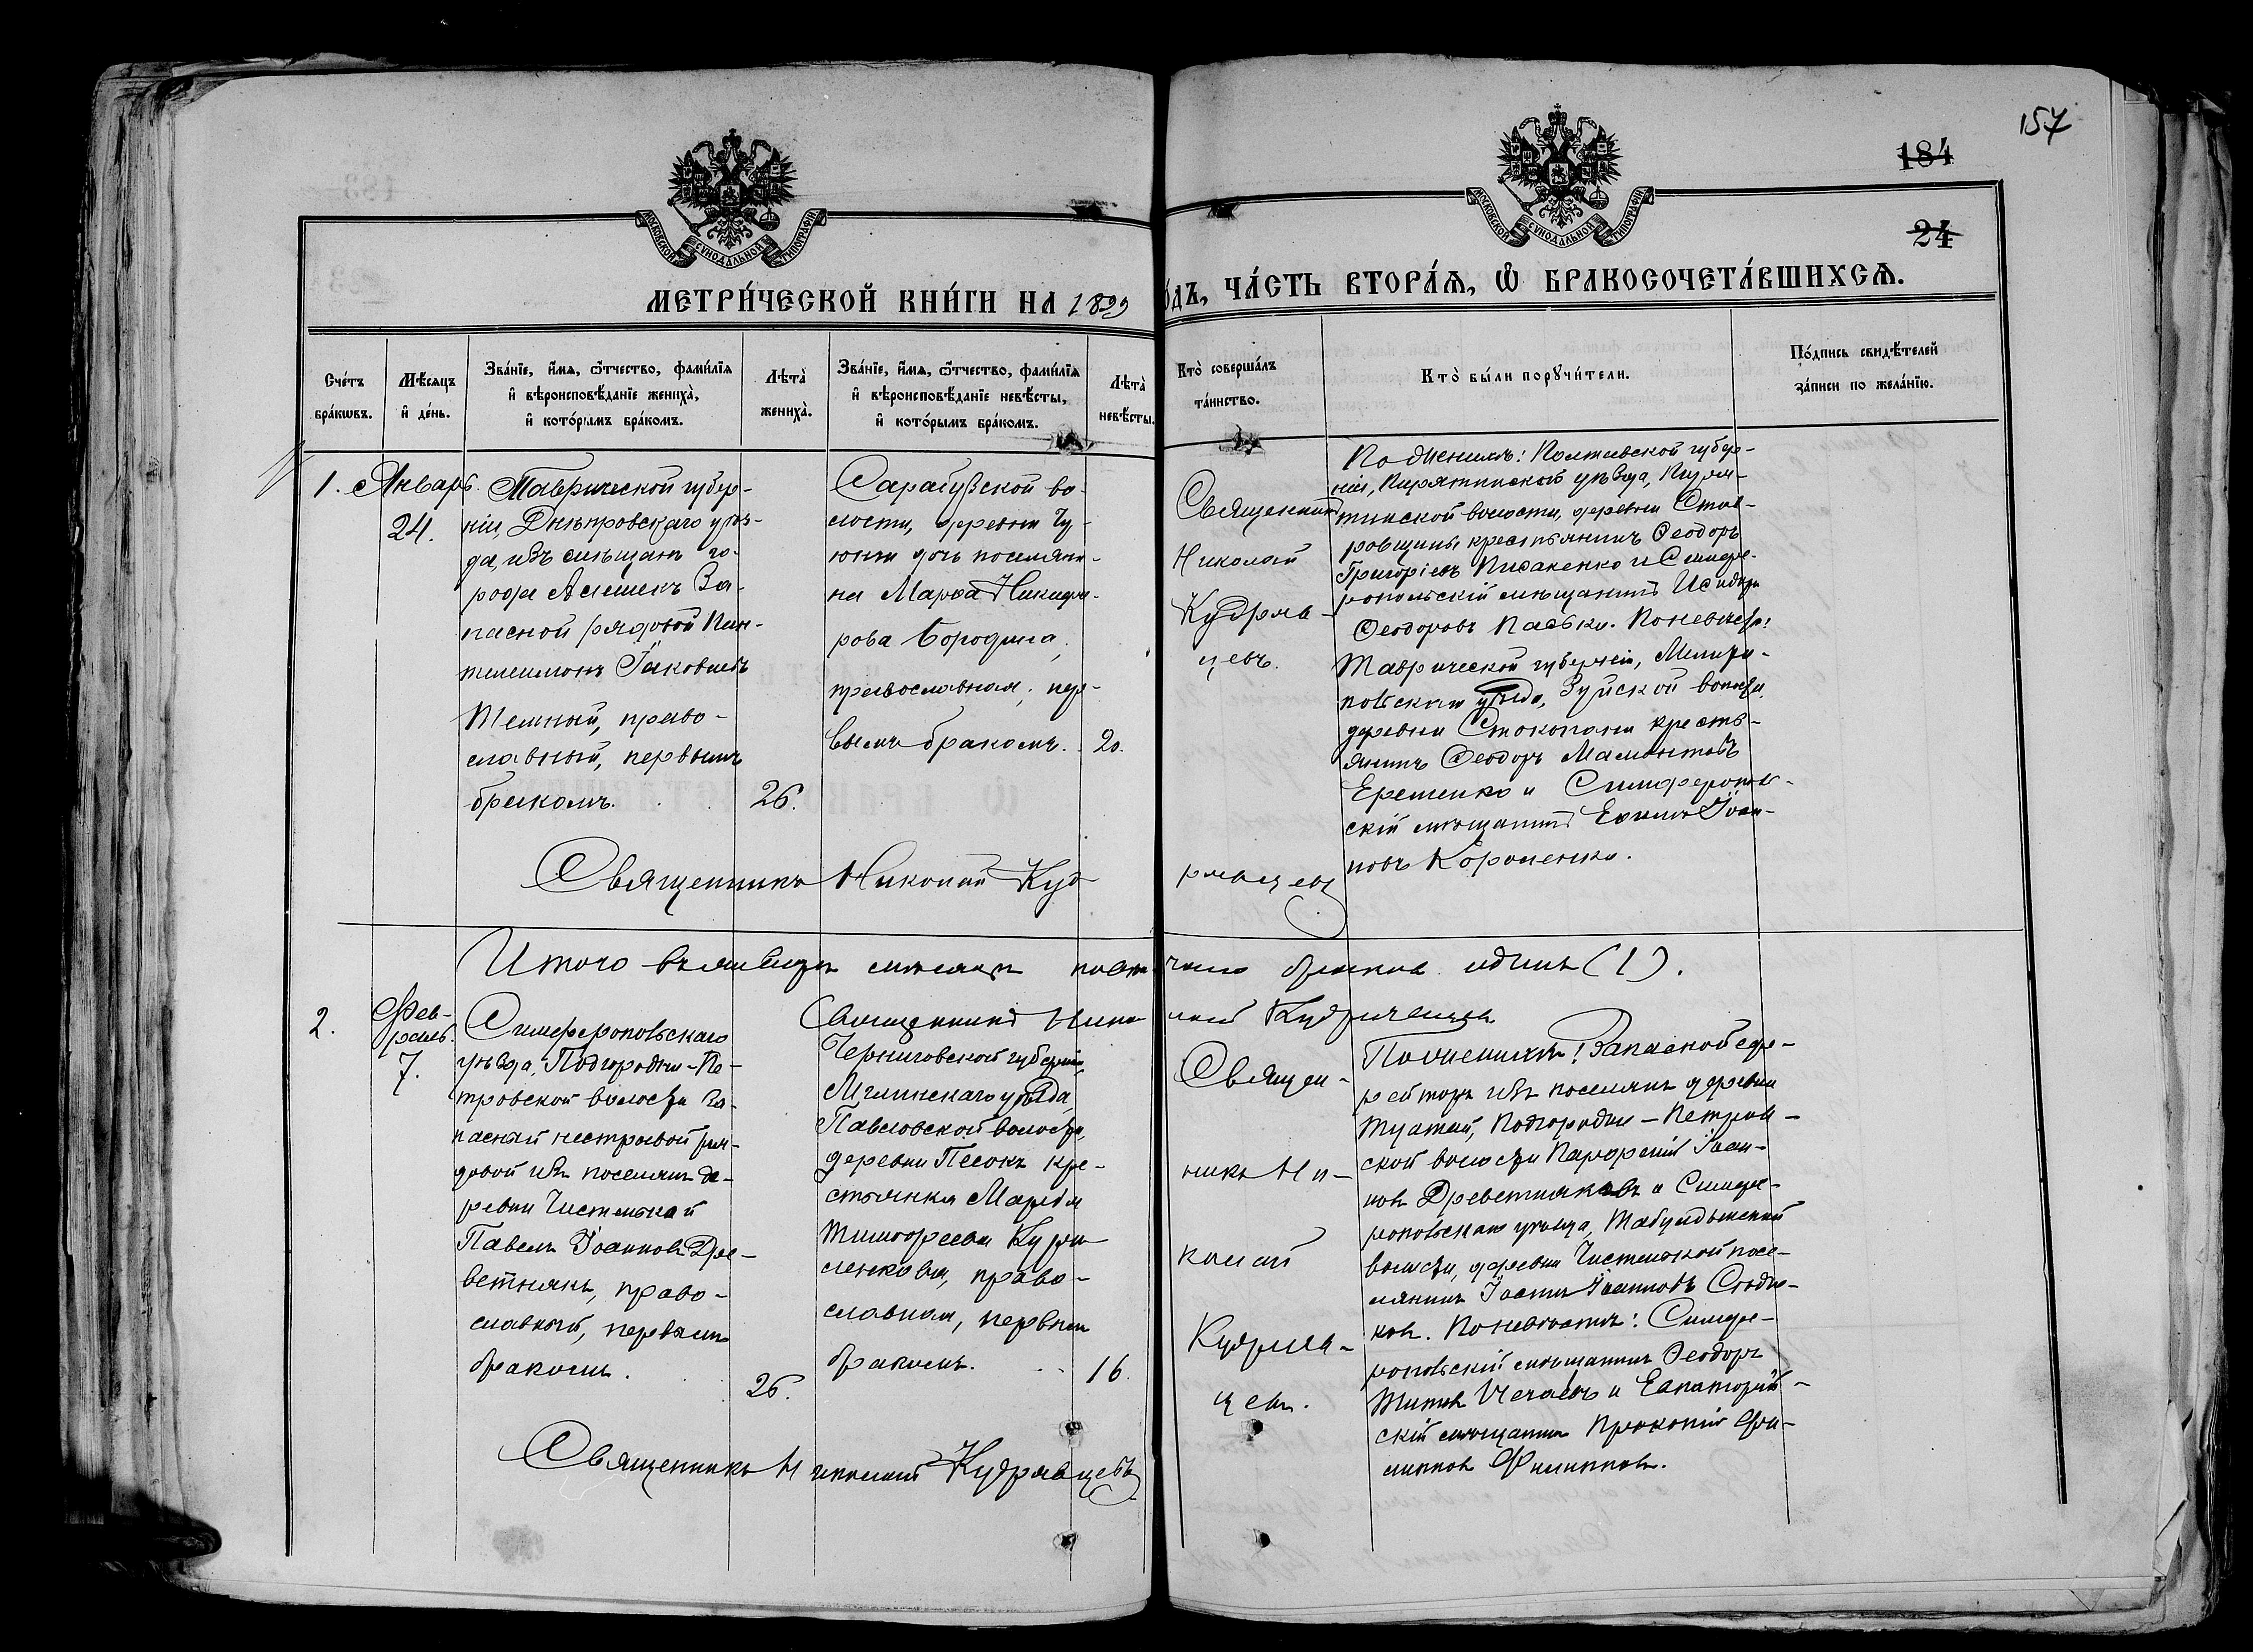 157
184
24
МОСКОВСКОЙ СѴНОДАЛЬНОЙ ТИПОГРАФІИ
МОСКОВСКОЙ СѴНОДАЛЬНОЙ ТИПОГРАФІИ
МЕТРИ́ЧЕСКОЙ КНИ́ГИ НА 1899 ГО́ДЪ, ЧА́СТЬ ВТОРА́Я, Ѡ БРАКОСОЧЕТА́ВШИХСЯ.
Сче́тъ
бра́кѡвъ.
Мѣ́сяцъ
и̂ де́нь.
Зва́нїе, и́мя, ѻ́тчество, фами́лїя
и̂ вѣроисповѣ́данїе жениха̀,
и̂ кото́рымъ бра́комъ.
Лѣта̀
жениха̀.
Зва́нїе, и́мя, ѻ́тчество, фами́лїя
и̂ вѣроисповѣ́данїе невѣ́сты,
и̂ кото́рымъ бра́комъ.
Лѣта̀
невѣ́сты.
Кто̀ соверша́лъ
та́инство.
Кто̀ бы́ли порꙋчи́тели.
По́дпись свидѣ́телей
за́писи по жела́нїю.
1.
Январь.
24.
Таврической губер-
ніи, Днѣпровскаго уѣз-
да, изъ мѣщанъ го-
рода Алешекъ За-
пасной рядовой Пан-
телеимонъ Іаковлевъ
Темный, право-
славный, первымъ
бракомъ.
26.
Сарабузской во-
лости, деревни Чу-
юнчи дочь поселяни-
на Марѳа Никифо-
рова Бородина,
православная, пер-
вымъ бракомъ.
20.
Священникъ
Николай
Кудряв-
цевъ.
По женихѣ: Полтавской губер-
ніи, Пирятинскаго уѣзда, Пиря-
тинской волости, деревни
крестьянинъ Ѳеодоръ
Григоріевъ Писаненко и Симфе-
ропольскій мѣщанинъ Исидоръ
Ѳеодоровъ Паська. По невѣстѣ:
Таврической губерніи,
уѣзда, Зуйской волости,
деревни кресть-
янинъ Ѳеодоръ Мамонтовъ
Еременко и Симферополь-
скій мѣщанинъ Іоан-
новъ Короленко.
Священникъ Николай Кудрявцевъ
Итого въ январѣ мѣсяцѣ браковъ одинъ (1).
Священникъ Николай Кудрявцевъ
2.
Фев-
раль.
7.
Симферопольскаго
уѣзда, Подгородне-Пе-
тровской волости за-
пасной нестроевой ря-
довой изъ поселянъ де-
ревни Чистенькой
Павелъ Іоанновъ Дре-
ветнякъ, право-
славный, первымъ
бракомъ.
26.
Черниговской губерніи,
Мглинскаго уѣзда,
Павловской волости,
деревни Песокъ кре-
стьянка Марѳа
Тимофеева Кури-
ленкова, право-
славная, первымъ
бракомъ.
16.
Священ-
никъ Ни-
колай
Кудряв-
цевъ.
По женихѣ: Запасной еф-
рейторъ изъ поселянъ деревни
Туатай, Подгородне-Петров-
ской волости Парфеній Іоан-
новъ Древетняковъ и Симфе-
ропольскаго уѣзда,
волости, деревни Чистенькой посе-
лянинъ Іоаннъ Іоанновъ
По невѣстѣ: Симфе-
ропольскій мѣщанинъ Ѳеодоръ
Титовъ Нечаевъ и Евпаторій-
скій мѣщанинъ Прокопій Фи-
липповъ Филипповъ.
Священникъ Николай Кудрявцевъ